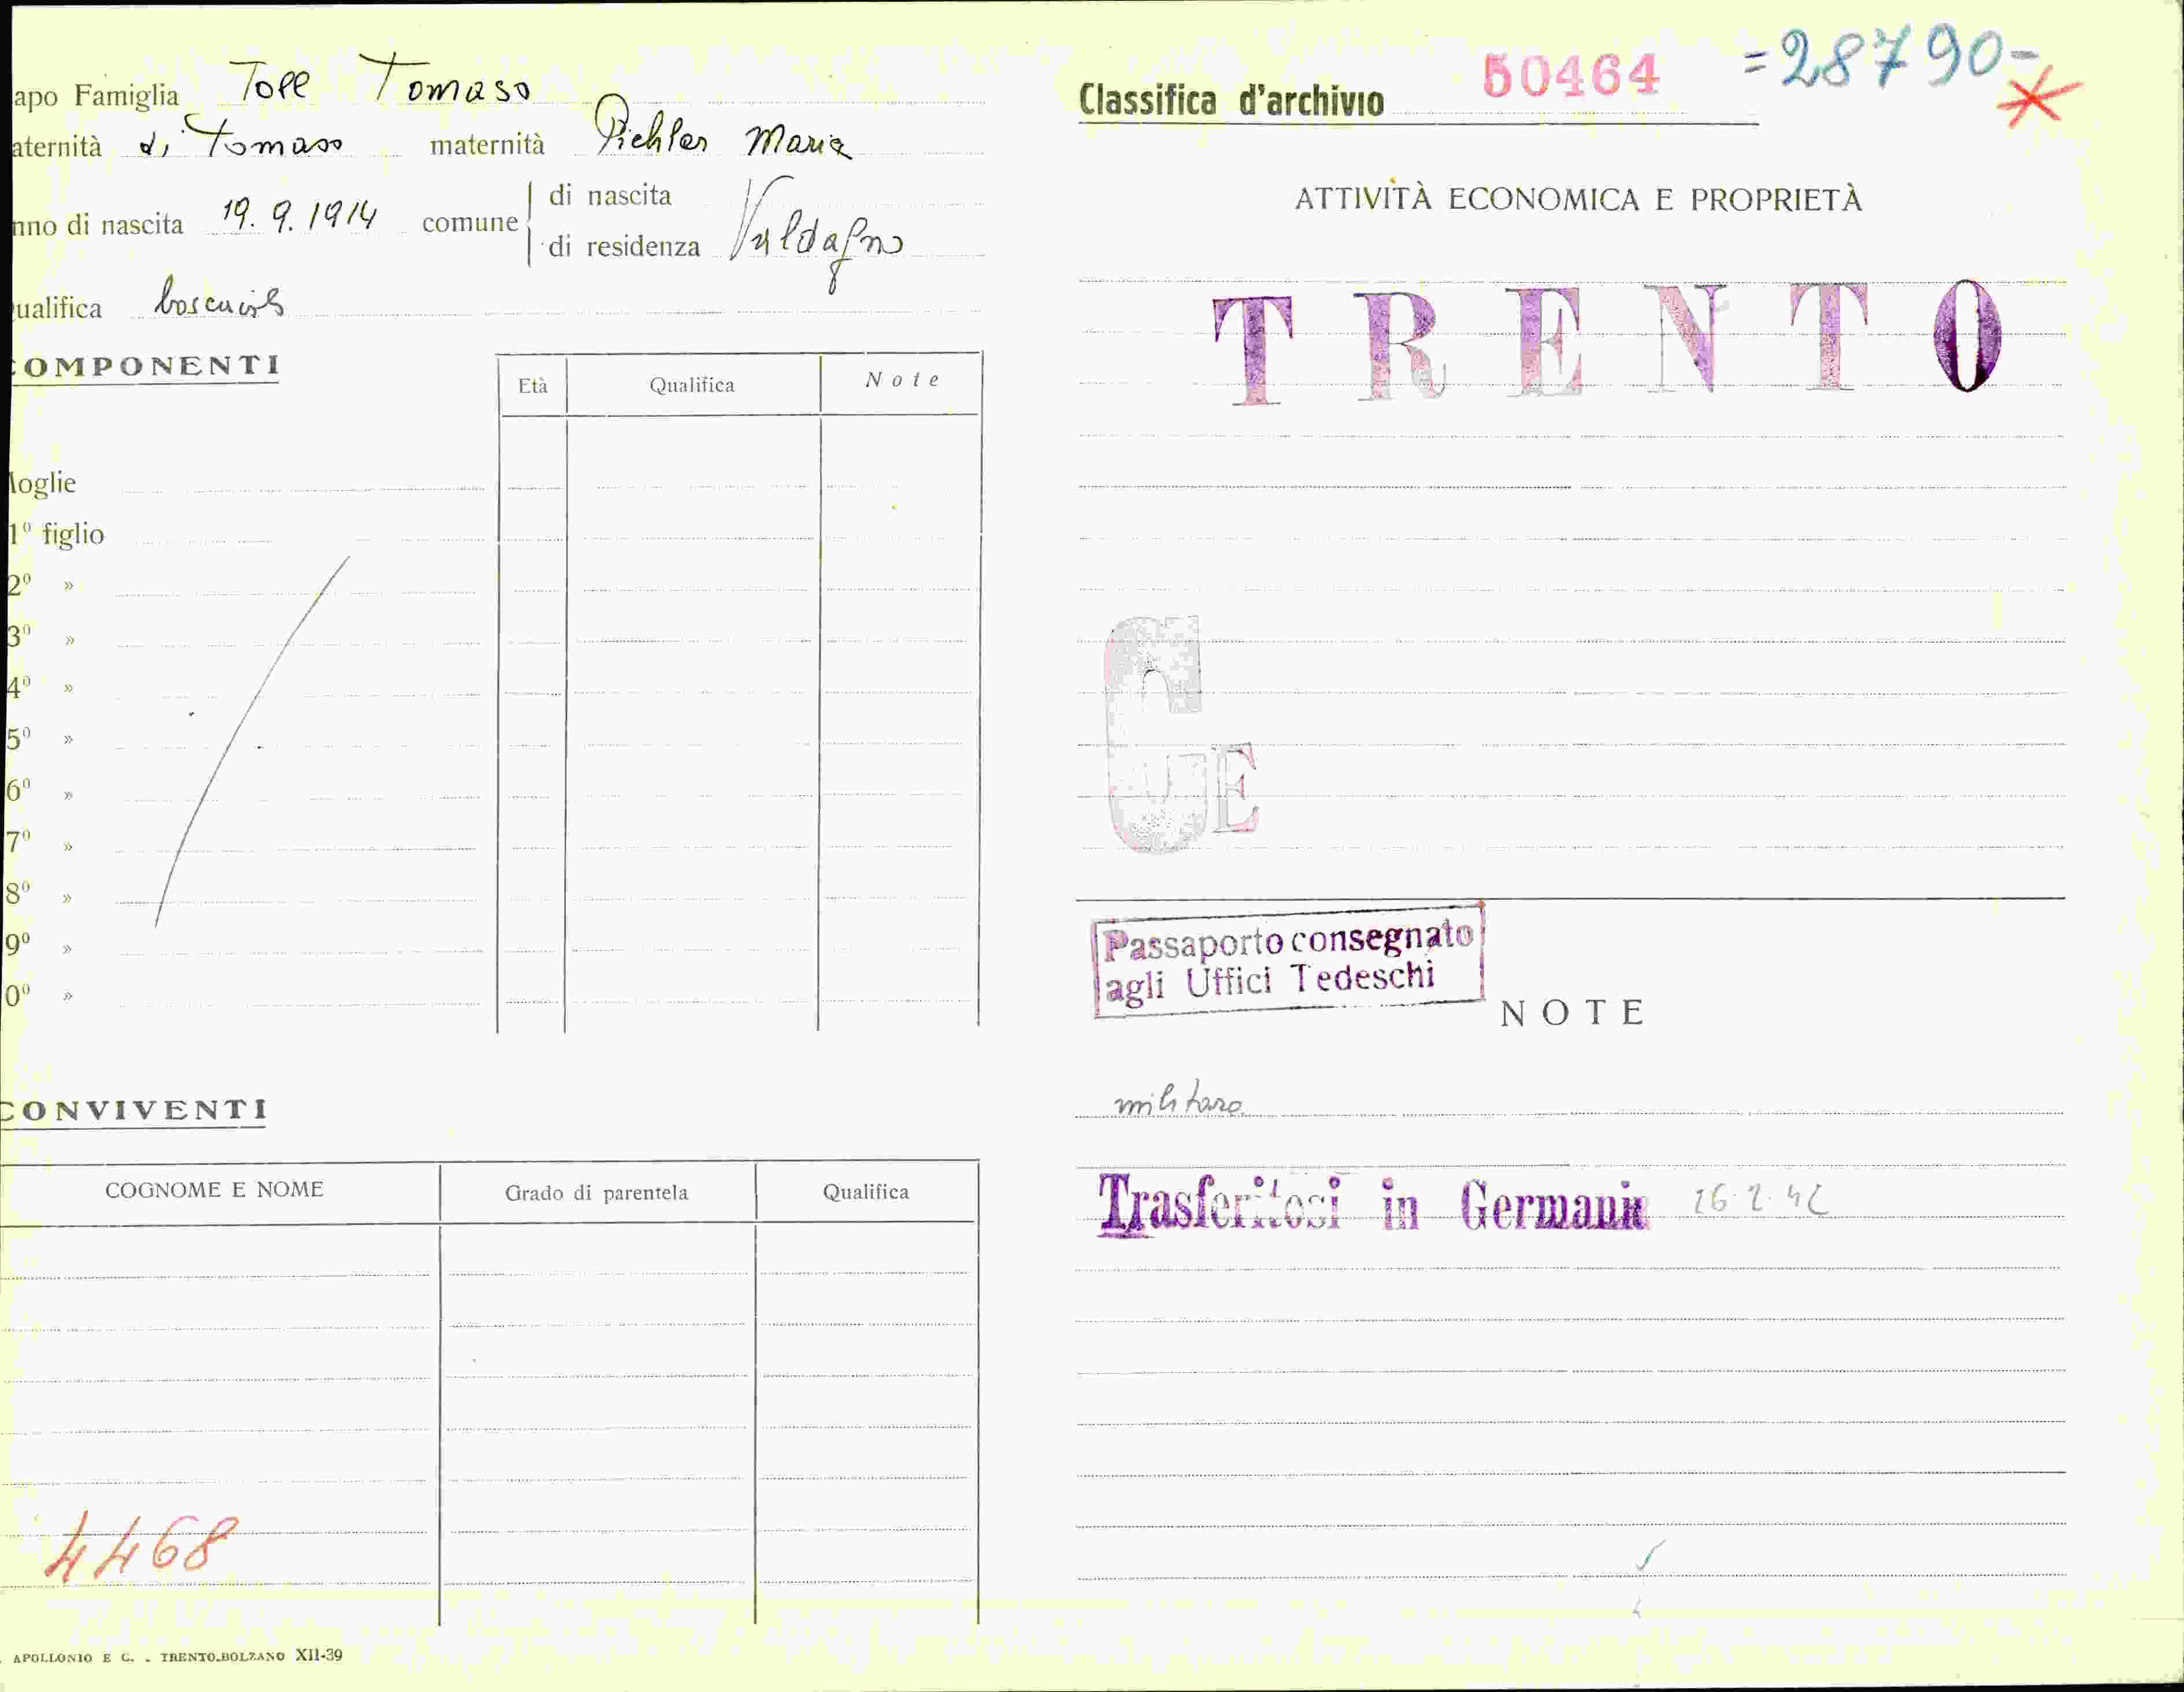 apo Famiglia Toll Tomaso
aternità di Tomaso maternità Pichler Maria
nno di nascita 19.9.1914 comune di nascita
di residenza Valdagno
ualifica
COMPONENTI
Età Qualifica Note
Moglie
1º figlio
2º »
3º »
4º »
5º »
6º »
7º »
8º »
9º »
0º »
CONVIVENTI
COGNOME E NOME Grado di parentela Qualifica
4468
APOLLONIO E C. - TRENTO-BOLZANO XII-39
=28790-
Classifica d'archivio 50464
ATTIVITÀ ECONOMICA E PROPRIETÀ
TRENTO
C
UE
Passaporto consegnato
agli Uffici Tedeschi
NOTE
militare
Trasferitosi in Germania 26.2.42